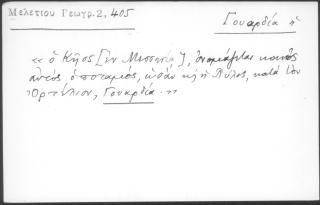 Μελετίου Γεωγρ. 2, 405
Γουαρδία ἡ
« ὁ Κῆος [ἐν Μεσσηνίᾳ], ὀνομάζεται κοινῶς
αὐτὸς ὁ ποταμὸς, ὡσὰν κὴ ἡ Πύλος, κατὰ τὸν
Ὀρτέλιον, Γουαρδία. »